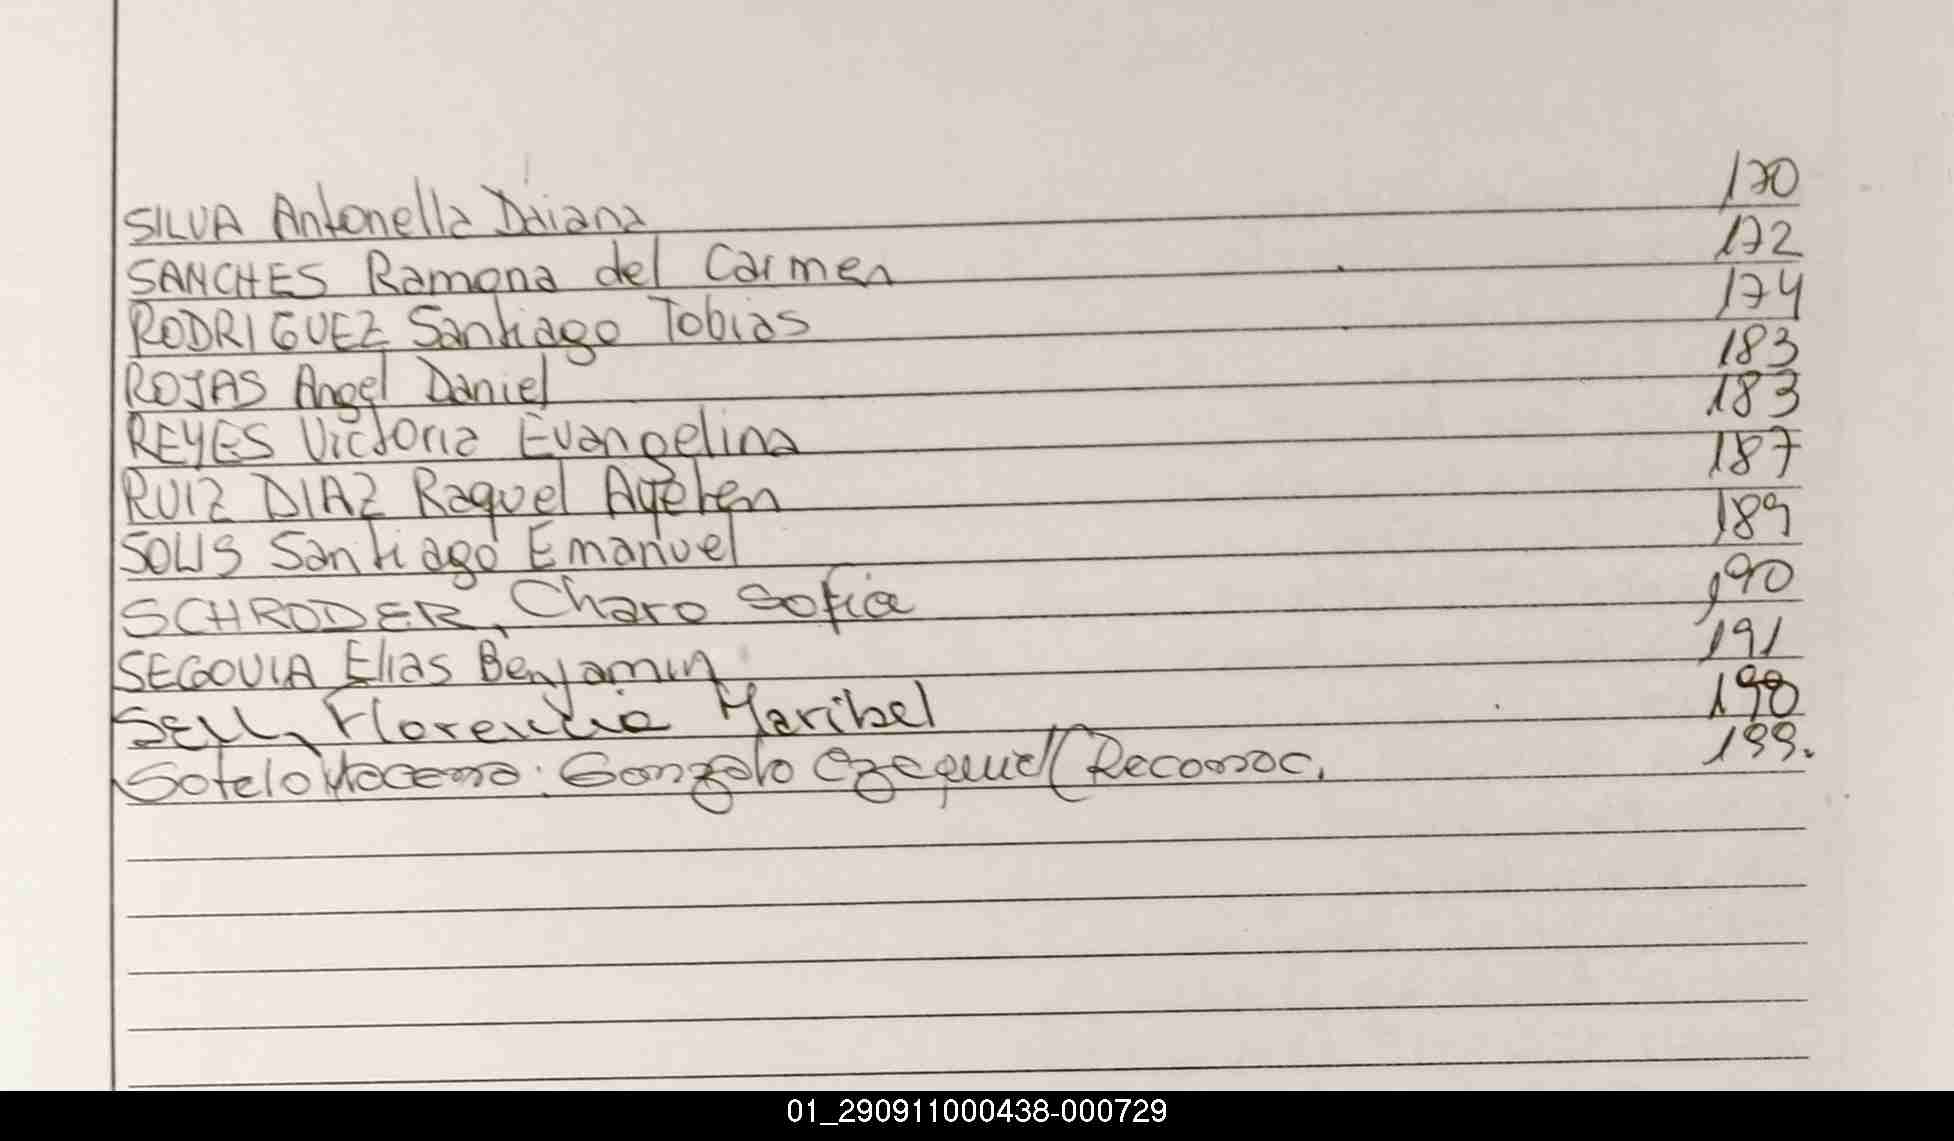 SILVA Antonella Daiana 170
SANCHES Ramona del Carmen 172
RODRIGUEZ Santiago Tobias 174
ROJAS Angel Daniel 183
REYES Victoria Evangelina 183
RUIZ DIAZ Raquel Ayelen 187
SOLIS Santiago Emanuel 189
SCHRODER, Charo Sofia 190
SEGOVIA Elias Benjamin 191
Florencia Maribel 198
Sotelo Gonzalo Ezequiel (Reconoc. 199.
01_290911000438-000729